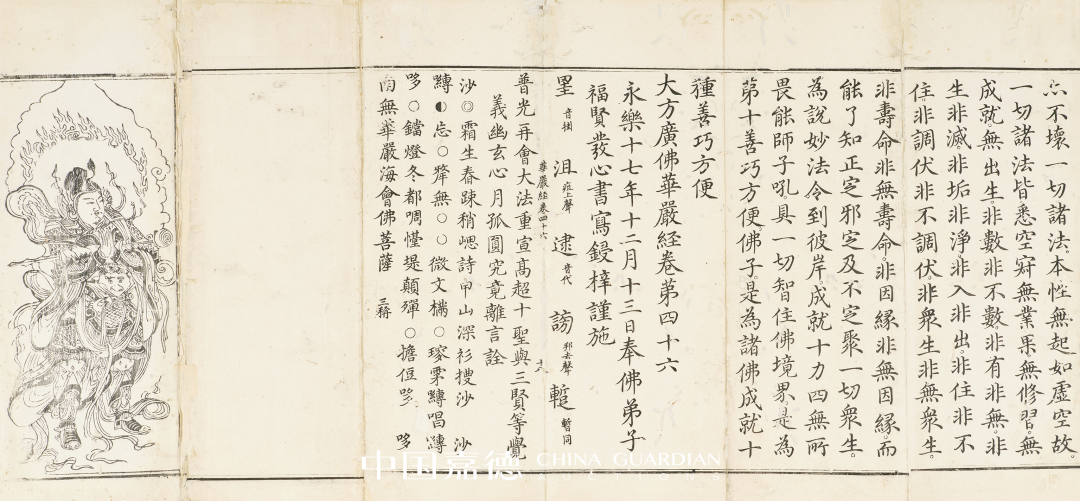 亦不壞一切諸法。本性無起如虛空故。
一切諸法皆悉空寂無業果無修習。無
成就無出生。非數非不數非有非無。非
生非滅非垢非淨。非入非出。非住非不
住非調伏非不調伏非衆生非無衆生。
非壽命非無壽命。非因緣非無因緣。而
能了知正定邪定及不定聚一切衆生。
為說妙法令到彼岸成就十力四無所
畏能師子吼具一切智住佛境界。是為
第十善巧方便。佛子。是為諸佛成就十
種善巧方便
大方廣佛華嚴經卷第四十六
永樂十七年十二月十三日奉佛弟子
福賢發心書寫鋟梓謹施
罣 沮 疽上聲 逮 音代 謗 邦去聲 蹔 暫同
華嚴經卷四十六
普光再會大法重宣高超十聖與三賢等覺
義幽玄心月孤圓究竟離言詮
沙◎霜生春踈稍崼詩甲山深衫搜沙 沙
縛◐忘○ 無○○微文 ○ 縛唱縛
哆○鐺燈冬都啁 堤顛殫○擔 哆 哆
南無華嚴海會佛菩薩 三稱
中国嘉德 CHINA GUARDIAN
AUCTIONS